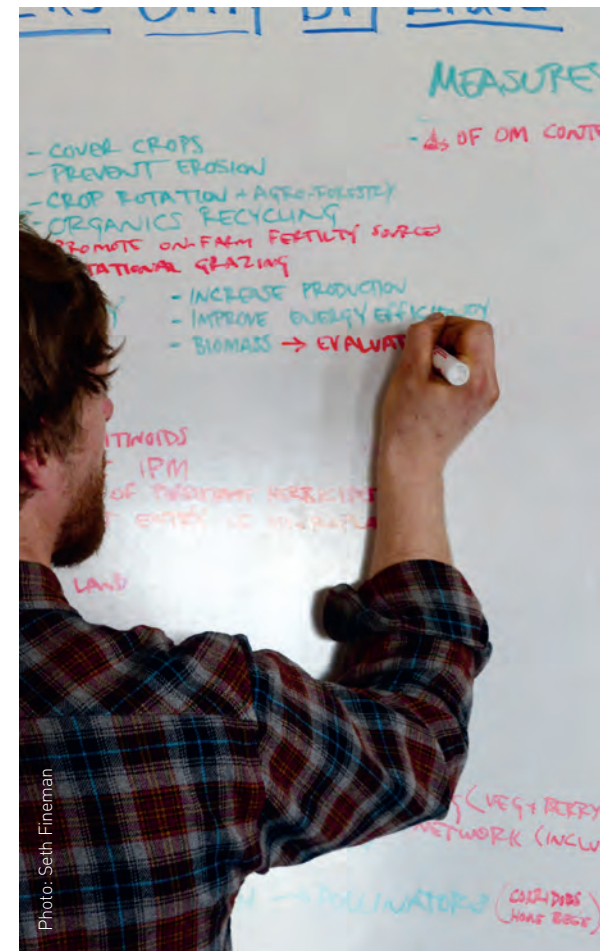 MEASURES
- Δs OF OM CONTE
- COVER CROPS
- PREVENT EROSION
- CROP ROTATION + AGRO-FORESTRY
- ORGANICS RECYCLING
PROMOTE ON-FARM FERTILTY SOURCES
TATIONAL GRAZING
- INCREASE PRODUCTION
- IMPROVE ENERGY EFFICIENCY
- BIOMASS → EVALUAT
ITINOIDS
IPM
OF HERBICIDES
ENTRY
LAND
(VEG + BERRY
NETWORK (INCLU
→ POLLINATORS (CORRIDORS
HOME BEES)
Photo: Seth Fineman